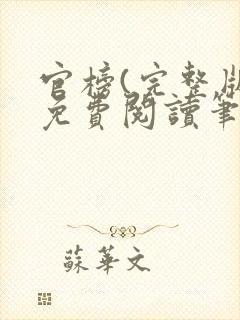 官榜(完整版
免費閱讀筆
蘇華文